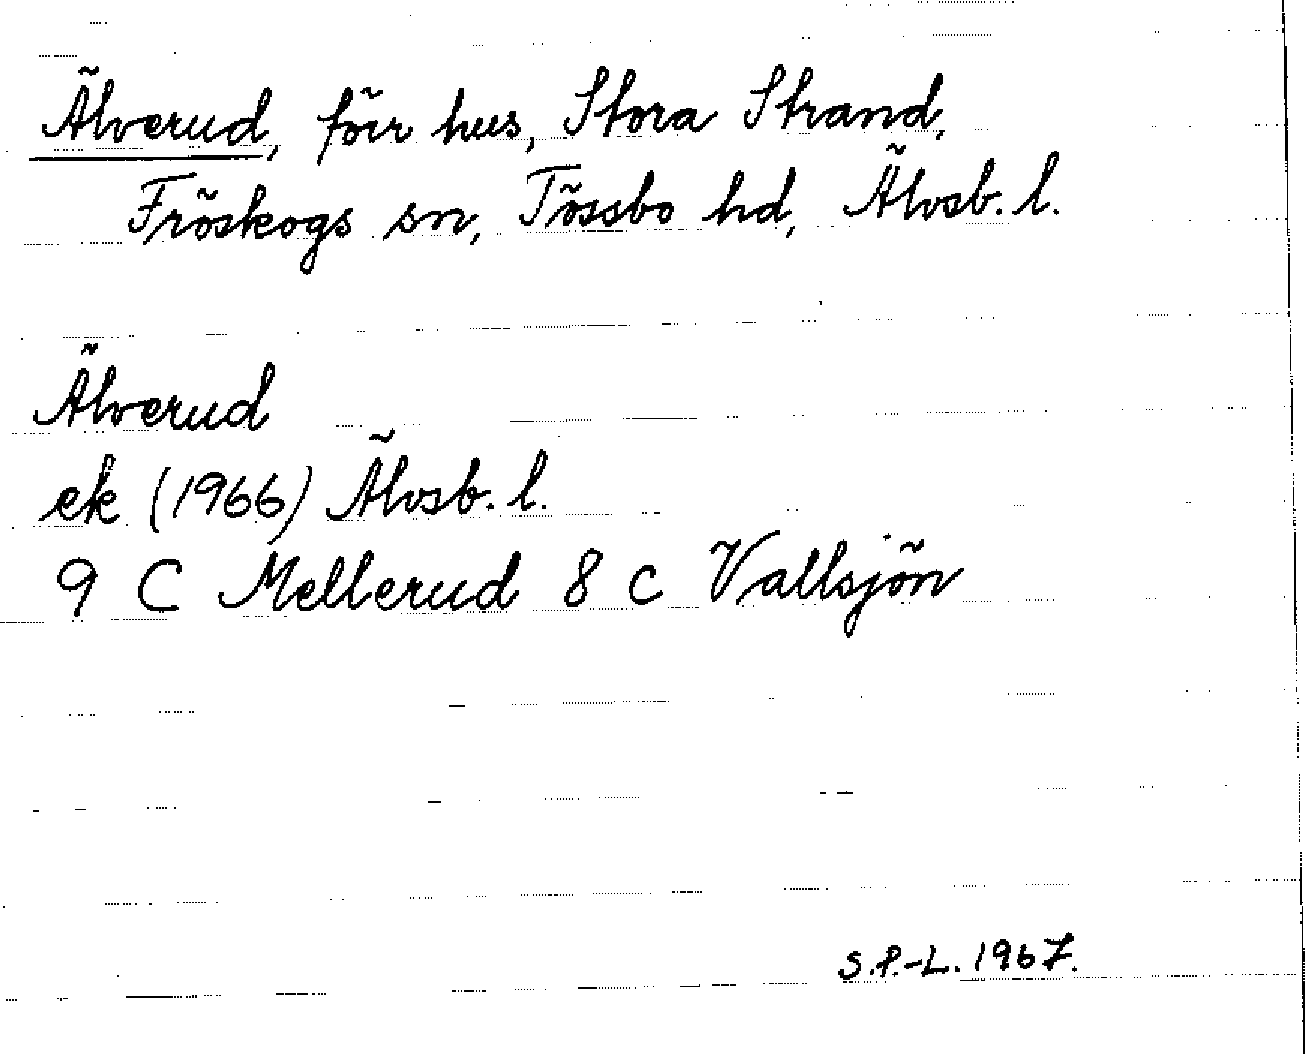 Älverud, förr hus, Stora Strand,
Fröskogs sn, Tössbo hd, Älvsb. l.
Älverud
ek (1966) Älvsb. l.
9 C Mellerud 8 c Vallsjön
S.P.-L. 1967.